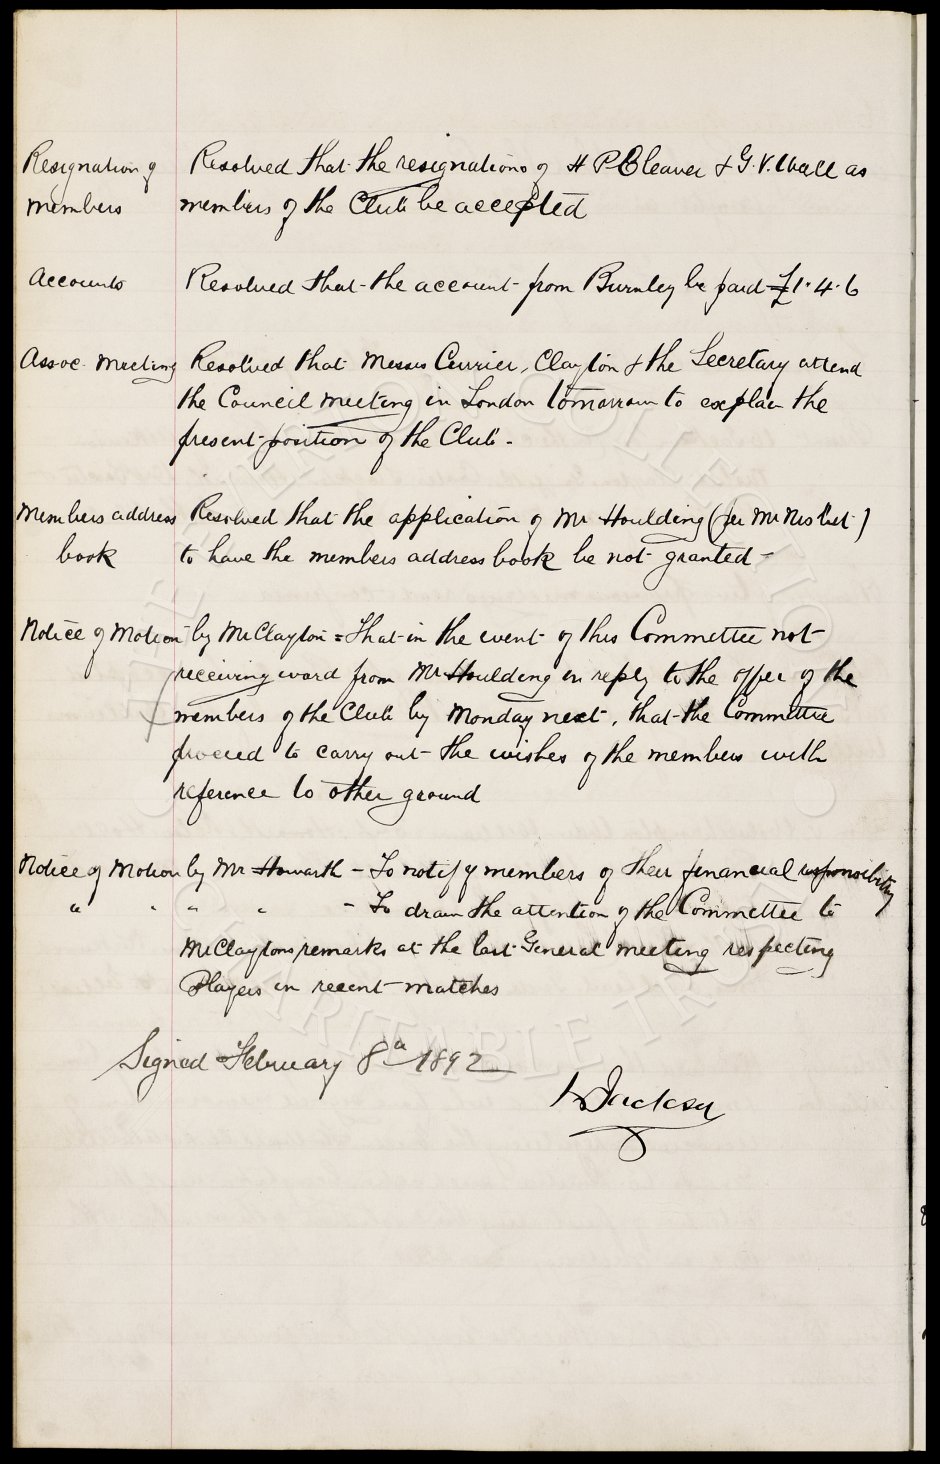 Resignation of Resolved that the resignations of H P Cleaver & G. V. Wall as
Members members of the Club be accepted
Accounts Resolved that the account from Burnley be paid £1. 4. 6
Assoc. Meeting Resolved that Messrs Currier, Clayton & the Secretary attend
the Council meeting in London tomorrow to explain the
present position of the Club -
Members address Resolved that the application of Mr Houlding (per Mr Nisbet)
book to have the members address book be not granted -
Notice of Motion by Mr Clayton = That in the event of this Committee not
receiving word from Mr Houlding in reply to the offer of the
members of the Club by Monday next, that the Committee
proceed to carry out the wishes of the members with
reference to other ground
Notice of Motion by Mr Howarth - To notify members of their financial responsibility
" " " " - To draw the attention of the Committee to
Mr Claytons remarks at the last General meeting respecting
Players in recent matches
Signed February 8th 1892
Jackson
EVERTON COLLECTION
CHARITABLE TRUST